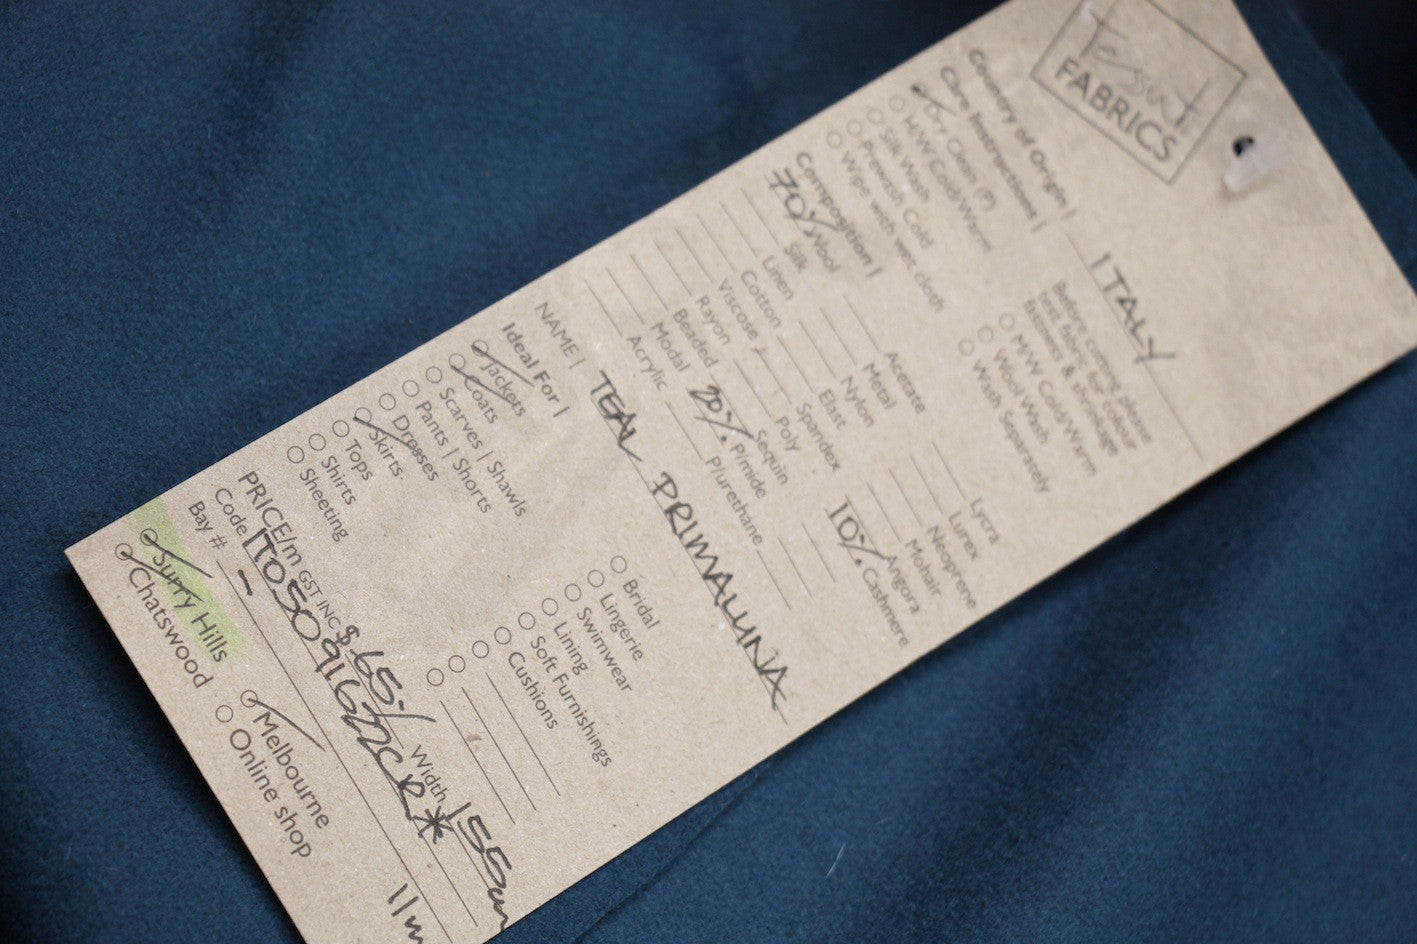 Tessuti
FABRICS
Country of Origin | ITALY
Care Instructions |
Dry Clean (P)
M/W Cold/Warm
Silk Wash
Prewash Cold
Wipe with wet cloth
Before cutting please
test fabric for colour
fastness & shrinkage
M/W Cold/Warm
Wool Wash
Wash Separately
Composition |
70% Wool
Silk
Linen
Cotton
Viscose
Rayon
Beaded
Modal
Acrylic
Acetate
Metal
Nylon
Elast
Spandex
Poly
Sequin
20% P/mide
P/urethane
Lycra
Lurex
Neoprene
Mohair
Angora
10% Cashmere
NAME | TEAL PRIMALUNA
Ideal For |
Jackets
Coats
Scarves | Shawls
Pants | Shorts
Dresses
Skirts
Tops
Shirts
Sheeting
Bridal
Lingerie
Swimwear
Lining
Soft Furnishings
Cushions
PRICE/m GST INC $65-/ Width 155cm
Code IT05091622CR*
Bay # - 11m
Surry Hills
Chatswood
Melbourne
Online shop